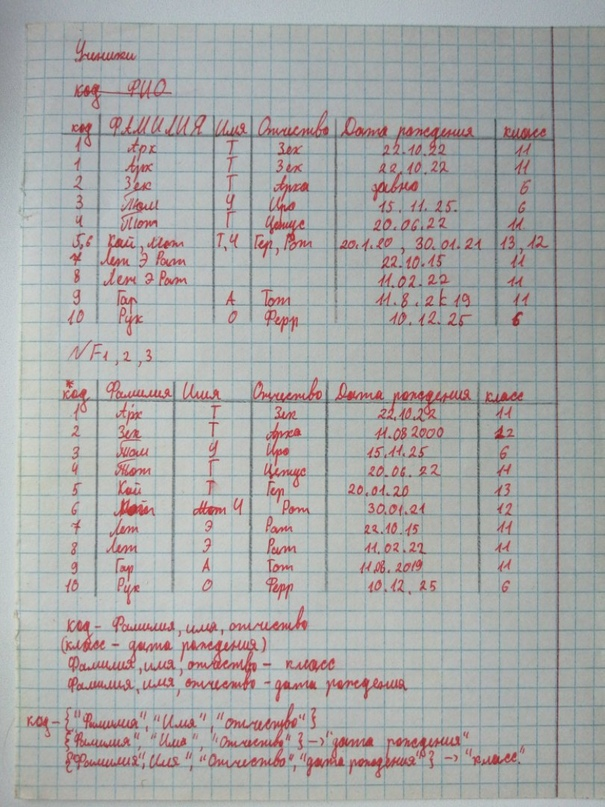 Ученики
код ФИО
код ФАМИЛИЯ Имя Отчество Дата рождения класс
1 Арк Т Зек 22.10.22 11
1 Арк Т Зек 22.10.22 11
2 Зек Т Арка давно 6
3 Тюм У Иро 15.11.25. 6
4 Тют Г Цетус 20.06.22 11
5,6 Кай, Мот Т,Ч Гер, Рэт 20.1.20, 30.01.21 13, 12
7 Лет Э Рат 22.10.15 11
8 Лет Э Рат 11.02.22 11
9 Гар А Тот 11.8.2к19 11
10 Рук О Ферр 10.12.25 6
NF1, 2, 3
*код Фамилия Имя Отчество Дата рождения класс
1 Арк Т Зек 22.10.22 11
2 Зек Т Арка 11.08 2000 12
3 Тюм У Иро 15.11.25 6
4 Тют Г Цетус 20.06.22 11
5 Кай Т Гер 20.01.20 13
6 Ч Рэт 30.01.21 12
7 Лет Э Рат 22.10.15 11
8 Лет Э Рат 11.02.22 11
9 Гар А Тот 11.08.2019 11
10 Рук О Ферр 10.12.25 6
код - Фамилия, имя, отчество
(класс - дата рождения)
Фамилия, имя, отчество - класс
Фамилия, имя, отчество - дата рождения
код - {"Фамилия", "Имя", "отчество"}
{"Фамилия", "Имя", "Отчество"} -> "дата рождения"
{"Фамилия", Имя", "Отчество", "дата рождения"} -> "класс"